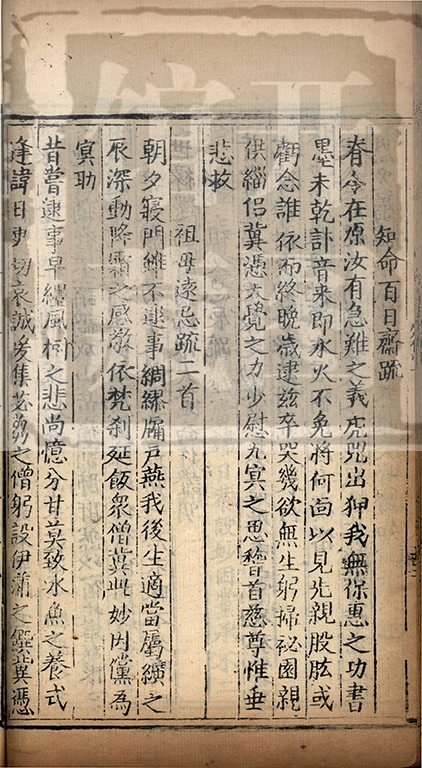 知命百日齋疏
脊令在原汝有急難之義虎兕出狎我無保惠之功書
墨未乾訃音来即水火不免將何面以見先親股肱或
虧念誰依而終晚歳逮兹卒哭幾欲無生躬掃祕園親
供緇侣冀憑大覺之力少慰九冥之思稽首慈尊惟垂
悲救
祖母逺忌疏二首
朝夕寝門雖不逮事綢繆牖户燕我後生適當屬纊之
辰深動降霜之感敬依梵刹延飯衆僧冀此妙因儻為
冥助
昔嘗逮事早纒風樹之悲尚憶分甘莫致冰魚之養式
逢諱日更切哀誠爰集苾蒭之僧躬設伊蒲之饌冀憑